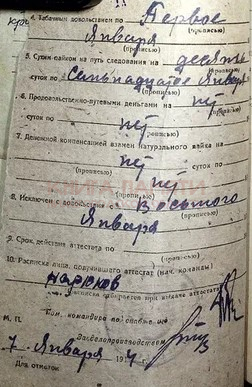 4. Табачным довольствием по Первое
Января
(прописью)
5. Сухим-пайком на путь следования на десять
суток по Семьнадцатое Января
(прописью)
6. Продовольственно-путевыми деньгами на нет
суток по нет
(прописью)
7. Денежной компенсацией взамен натурального пайка на
нет суток по
нет
(прописью)
8. Исключен с довольствия с Восьмого
Января
(прописью)
9. Срок действия аттестата по
(прописью)
10. Расписка лица, получившего аттестат (нач. команды)
Расписка отбирается при выдаче аттестата
Пом. командира по снабжению
М. П.
Заведелопроизводством
7 Января 194
Для отметок